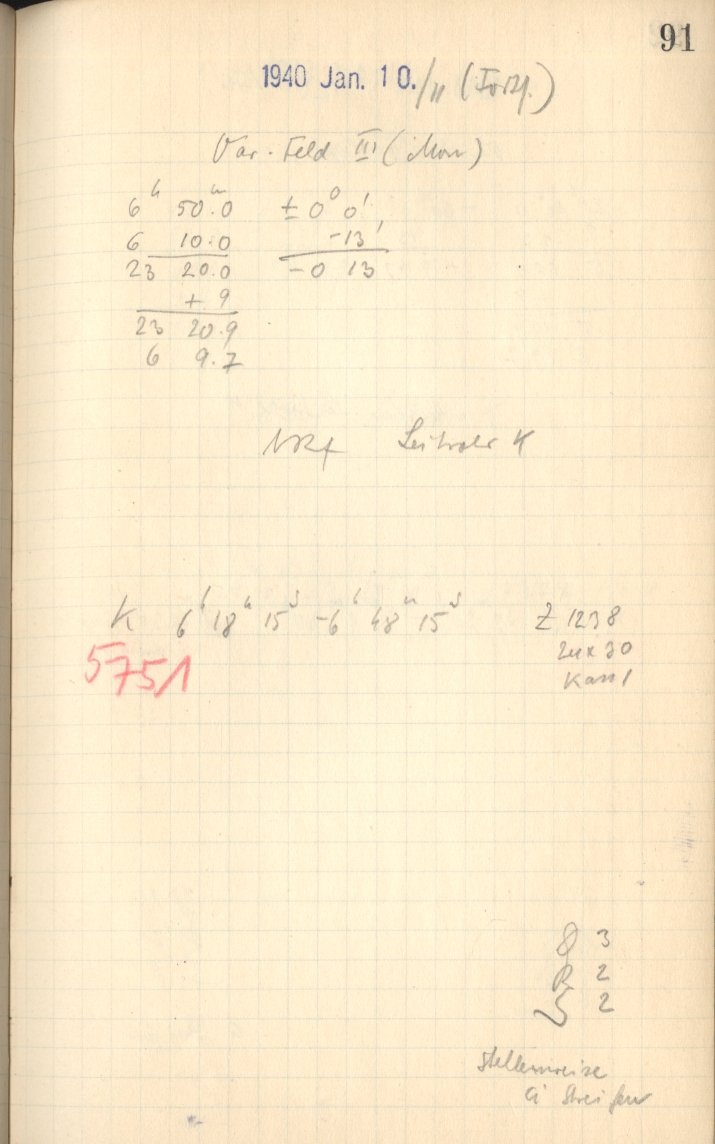 91
1940 Jan. 10./11 (Forts.)
Var. Feld III (Mon)
6h 50m.0 ± 0° 0'
6 10.0 -13'
23 20.0 -0 13
+ 9
23 20.9
6 9.7
Leitrohr K
K 6h 18m 15s - 6h 48m 15s Z 1238
5751 24x30
Kass 1
3
R 2
2
stellenweise
Ci Streifen